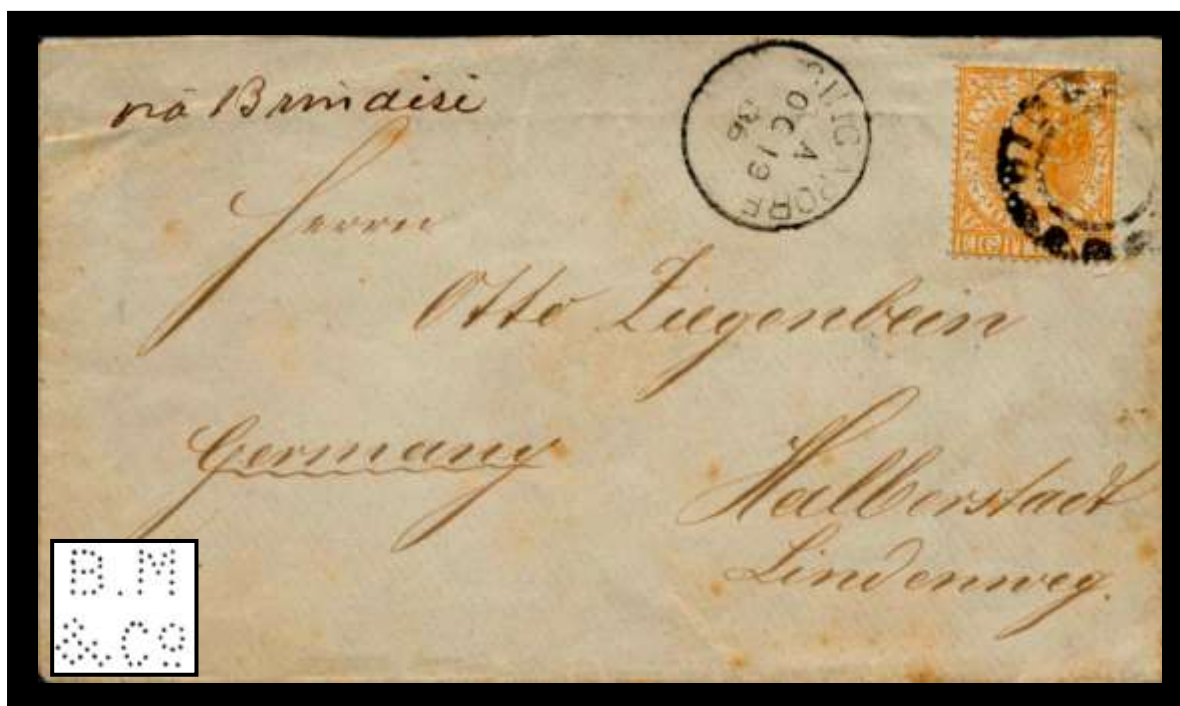 via Brindisi
SINGAPORE
A
OC 19
86
EIGHT
Herrn
Otto Ziegenbein
Germany
Halberstadt
Lindenweg.
B.M
&.Co